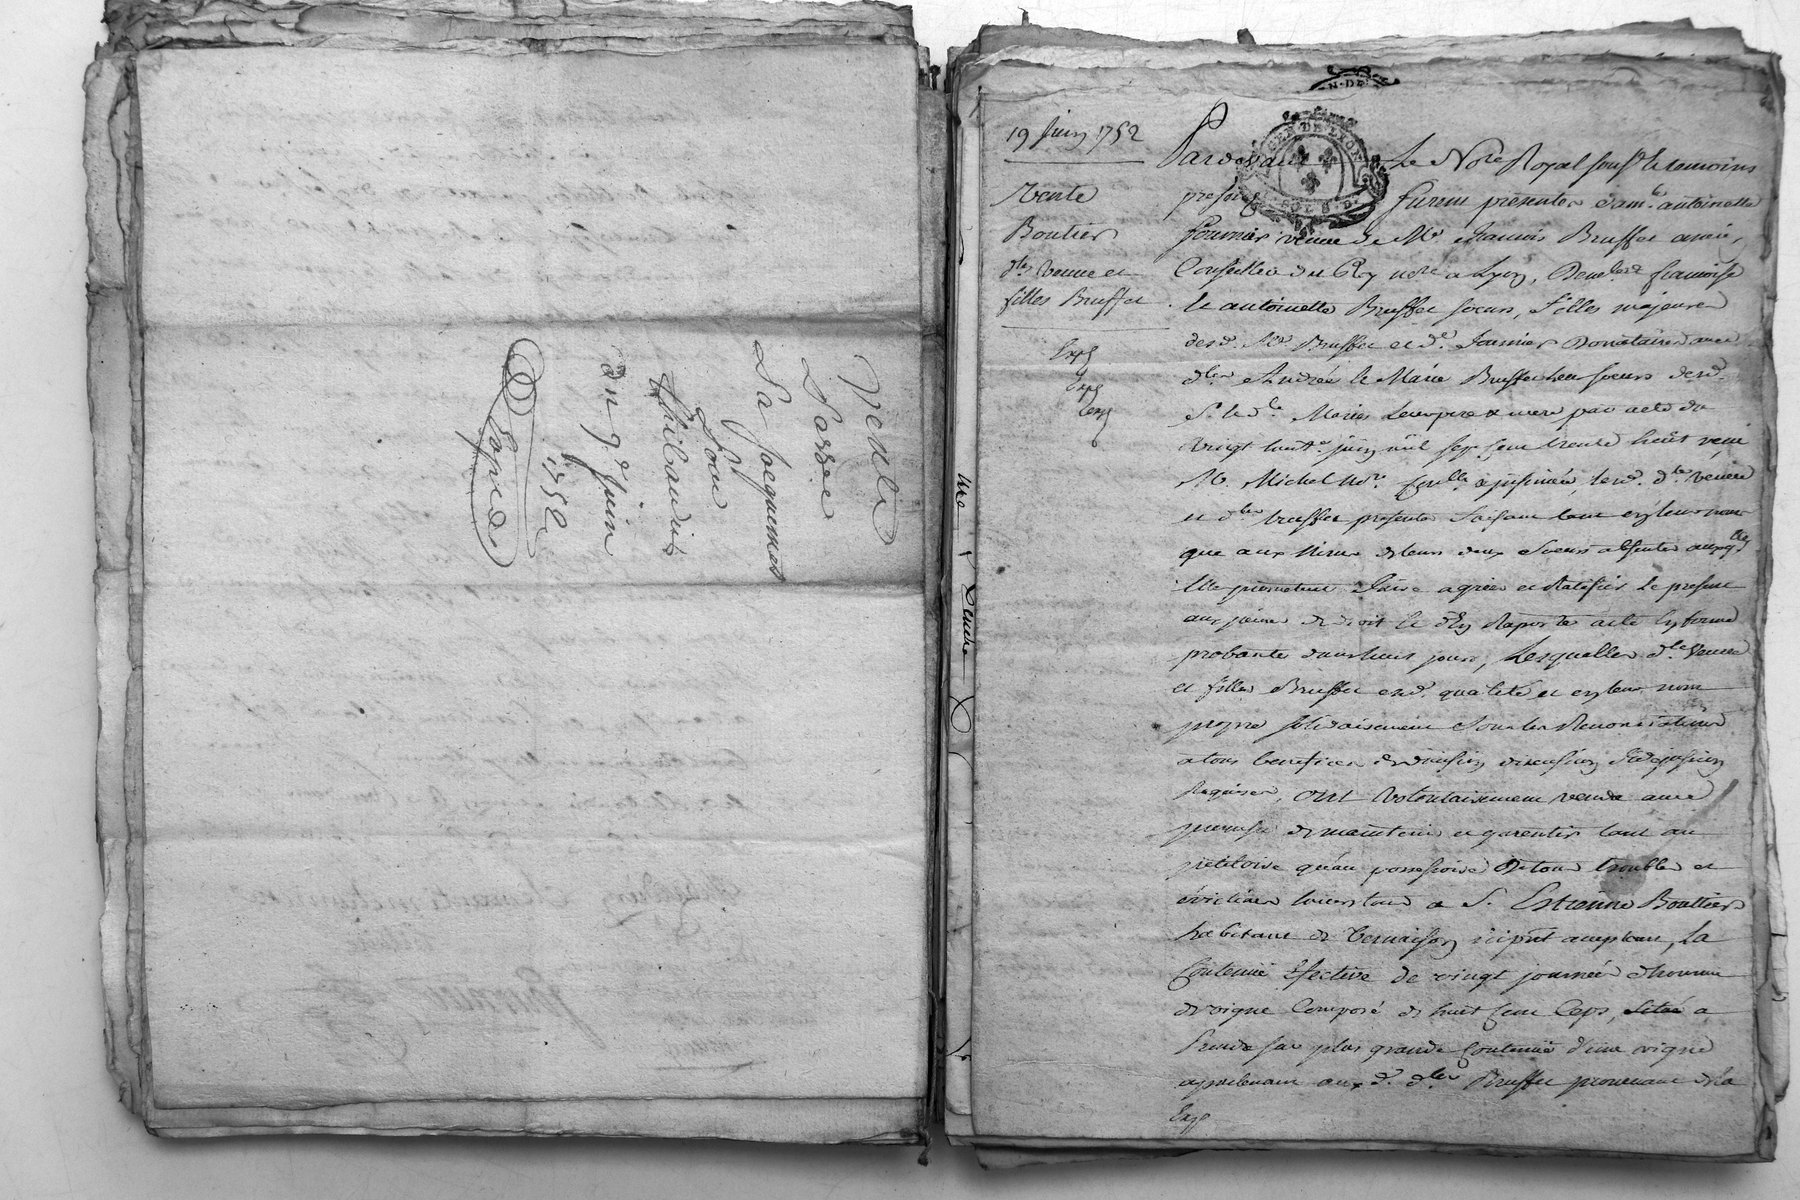 Vente
Passée
La Jacquemet
Pour
Thibaudit
du 9e Juin
1752
Expedié
19 Juin 1752
Vente
Boutier
dles veuve et
filles Bruffet
Exp
Exp
GEN DE LYON
SOLS D
Pardevant Le Nore Royal souse. et temoins
presens furent presentes dame. antoinette
fournier veuve de Mr. francois Bruffet ancien
Conseiller du Roy nore a Lyon, Demelles francoise
et antoinette Bruffet soeurs, filles majeures
desd. Mr. Bruffet et de. fournier Donataires avec
dlles Andrée et Marie Bruffet leurs soeurs desd.
Sr. et dle Mariés Leurs pere & mere par acte du
vingt huite. juin mil sept cent trente huit receu
Mr. Michel Nore. lesd. dle veuve
et dlles bruffet presentes faisant tant en leurs noms
que aux noms de leurs deux soeurs absentes
elle promettent faire agreer et Ratifier le present
aux peines de droit et d'en Raporter acte en forme
probante dans huit jours, Lesquelles dle veuve
et filles Bruffet esd. qualité et en leur nom
propre solidairement sous les Renonciations
a tous benefices de division discution
Requises, ont volontairement vendu avec
promesse de maintenir et garentir tant au
petitoire qu'au possessoire de tous troubles et
évictions envers tous a Sr. Estienne Bouttier
habitant de Ternaison icy pnt acceptant, La
Contenue Efective de vingt journée d'homme
de vigne Composé de huit cent Ceps, située a
Prendre sur plus grande Contenue d'une vigne
apartenant aux d. dlles Bruffet provenant de la
Exp